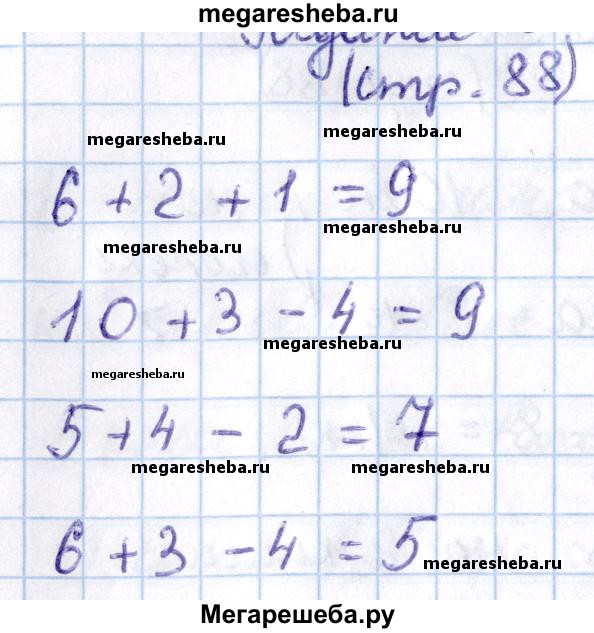 megaresheba.ru
(стр. 88)
megaresheba.ru megaresheba.ru
6 + 2 + 1 = 9
megaresheba.ru megaresheba.ru
10 + 3 - 4 = 9
megaresheba.ru
megaresheba.ru
5 + 4 - 2 = 7
megaresheba.ru megaresheba.ru
6 + 3 - 4 = 5
megaresheba.ru
Мегарешеба.ру